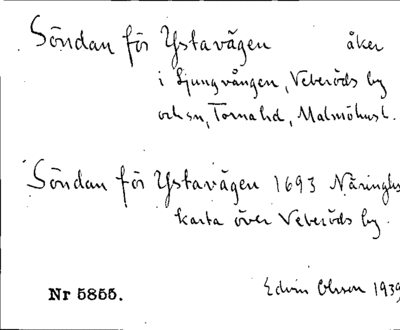 Söndan för Ystavägen åker
i Ljungvången, Veberöds by
och sn, Torna hd, Malmöhus l.
Söndan för Ystavägen 1693
karta över Veberöds by.
Nr 5855.
Edvin Ohlsson 1939